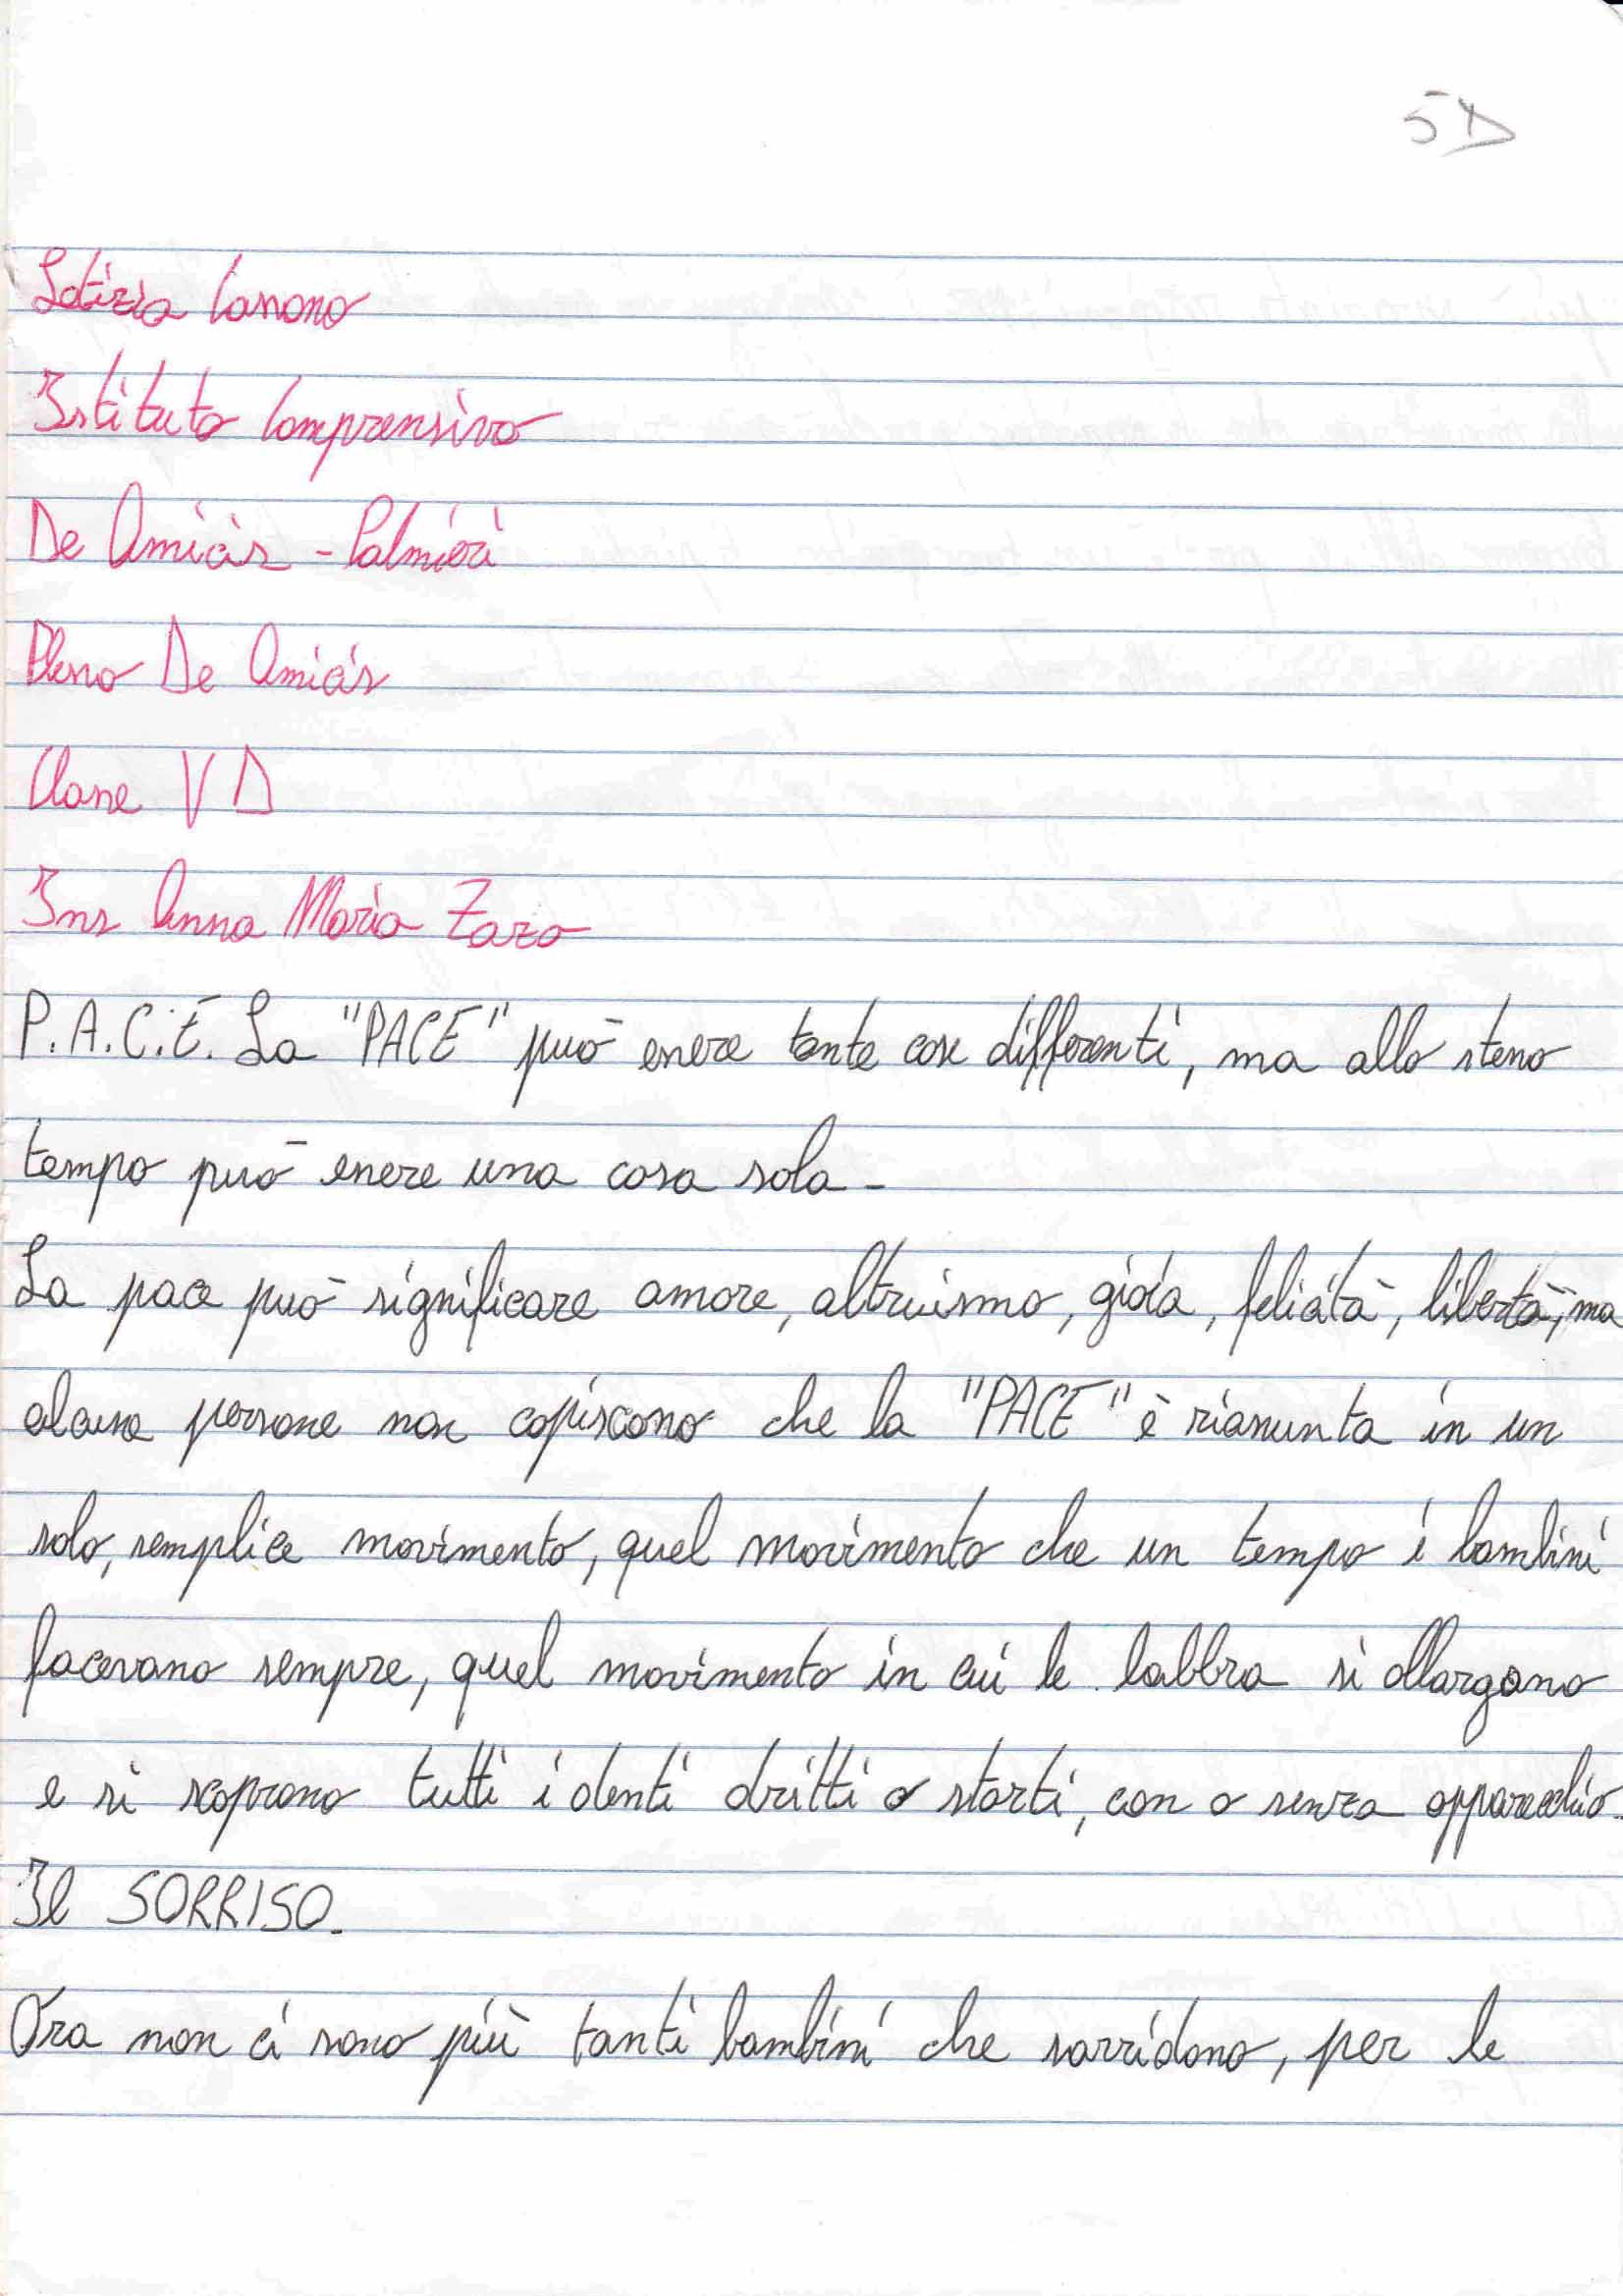 5D
Letizia Canono
Istituto Comprensivo
De Amicis - Palmieri
Plesso De Amicis
Classe V D
Ins Anna Maria Zazo
P.A.C.E. La "PACE" può essere tante cose differenti, ma allo stesso
tempo può essere una cosa sola.
La pace può significare amore, altruismo, gioia, felicità, libertà, ma
alcune persone non capiscono che la "PACE" è riassunta in un
solo, semplice movimento, quel movimento che un tempo i bambini
facevano sempre, quel movimento in cui le labbra si allargano
e si scoprono tutti i denti dritti o storti, con o senza apparecchio.
Il SORRISO.
Ora non ci sono più tanti bambini che sorridono, per le